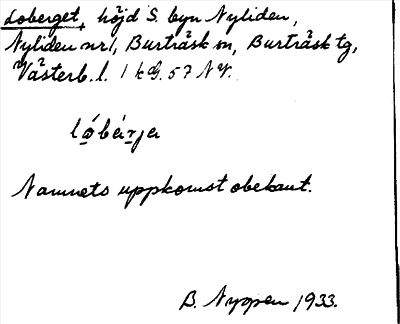 Loberget, höjd S. byn Nyliden,
Nyliden nr 1, Burträsk sn, Burträsk tg,
Västerb. l. 1 kg. 57 NV.
lo̲bár̲ja
Namnets uppkomst obekant.
B. Nygren 1933.